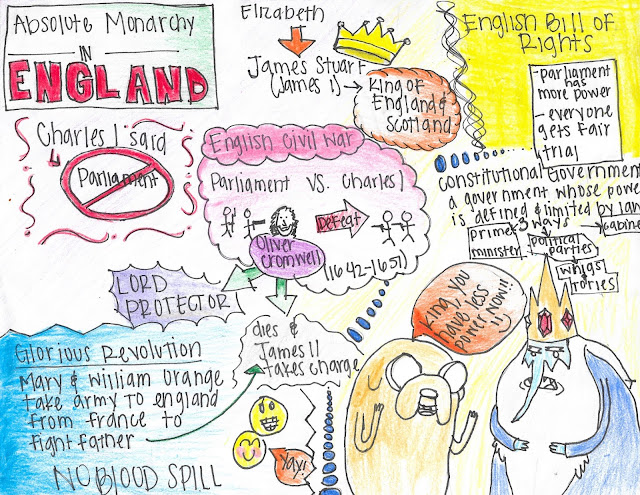 Absolute Monarchy
IN
ENGLAND
Elizabeth
James Stuart
(James 1)
King of
England &
Scotland
English Bill of
Rights
- Parliament
has
more power
- everyone
gets fair
trial
Charles 1 said
Parliament
English Civil War
Parliament VS. Charles 1
Defeat
Oliver
Cromwell
(1642-1651)
constitutional Government
a government whose power
is defined & limited by law
3 ways
prime
minister
political
parties
cabinet
whigs
tories
LORD
PROTECTOR
dies &
James II
takes charge
King, you
have less
power now!!
Glorious Revolution
Mary & William Orange
take army to england
from france to
fight father
NO BLOOD SPILL
Yay!